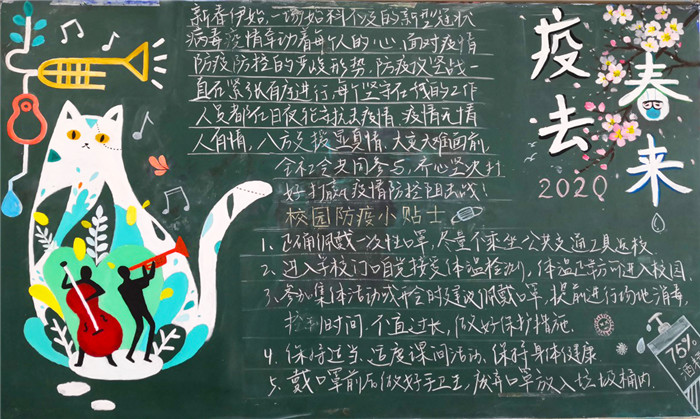 新春伊始，一场始料不及的新型冠状
病毒疫情牵动着每个人的心，面对疫情
防疫防控的严峻形势，防疫攻坚战
直在紧张有序进行，每个坚守在线的工作
人员都在日夜抗击疫情，疫情无情
人有情，八方支援显真情，大灾大难面前，
全社会共同参与，齐心坚决打
好打赢疫情防控阻击战！
疫去
春来
2020
校园防疫小贴士
1、正确佩戴一次性口罩，尽量不乘坐公共交通工具返校
2、进入学校门口自觉接受体温检测，体温正常方可进入校园
3、参加集体活动或开会时建议佩戴口罩，提前进行场地消毒
控制时间，不宜过长，做好保护措施。
4、保持适当、适度课间活动，保持身体健康
5、戴口罩前后做好手卫生，废弃口罩放入垃圾桶内.
75%
酒